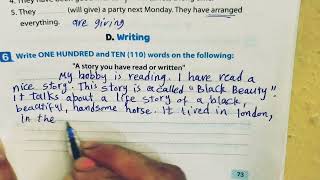 5. They (will give) a party next Monday. They have arranged
everything. are giving
D. Writing
6 Write ONE HUNDRED and TEN (110) words on the following:
"A story you have read or written"
My hobby is reading. I have read a
nice story. This story is called "Black Beauty".
It talks about a life story of a black,
beautiful, handsome horse. It lived in london,
in the
73